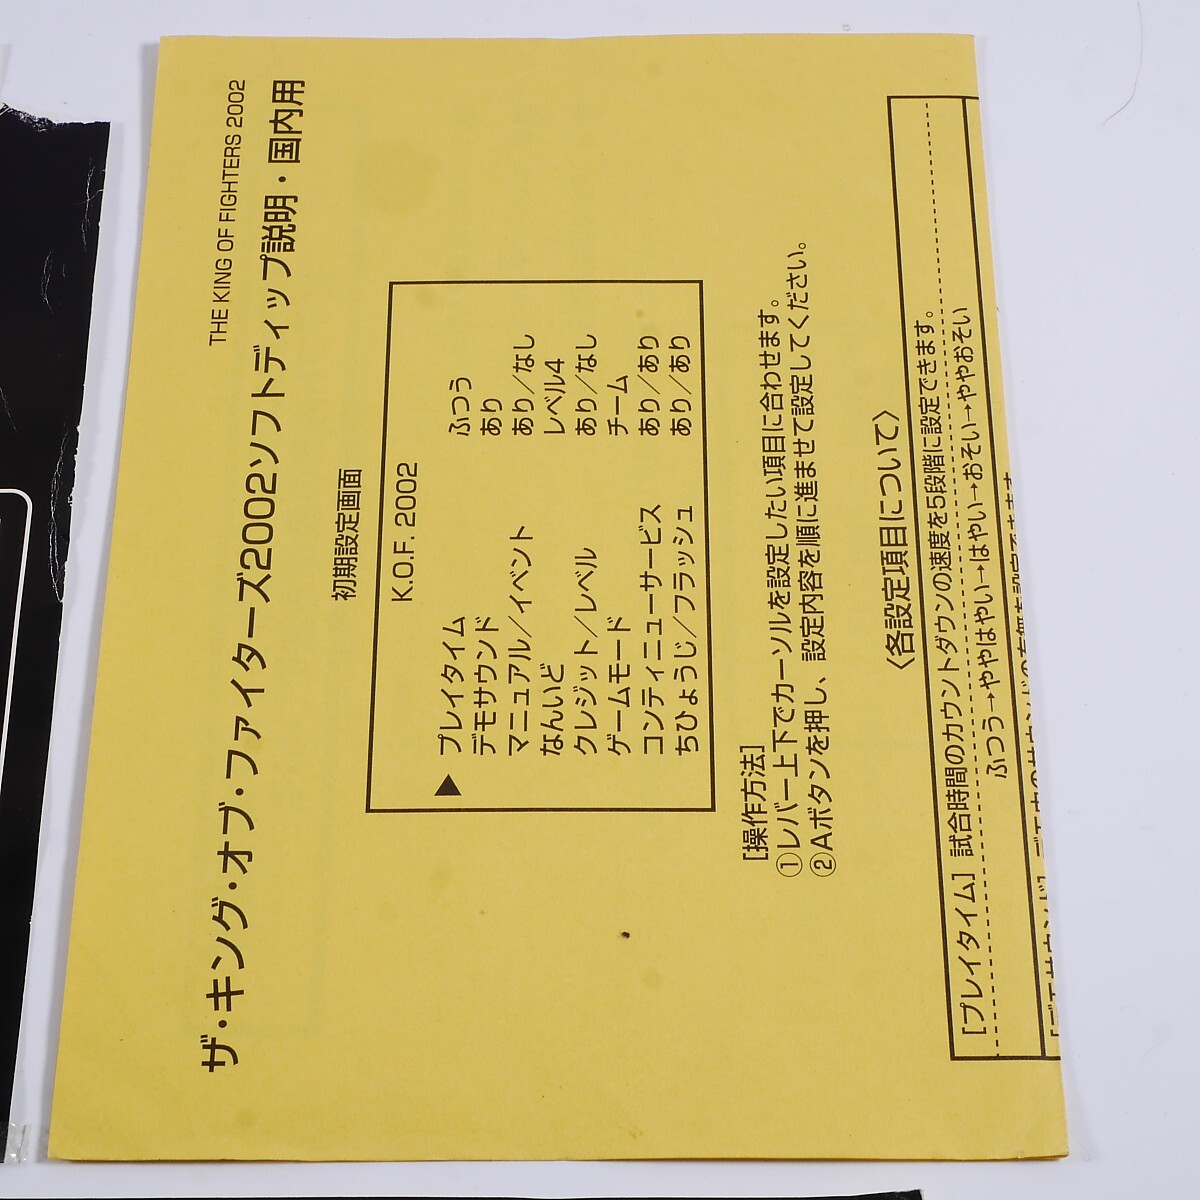 THE KING OF FIGHTERS 2002
ザ・キング・オブ・ファイターズ2002ソフトディップ説明・国内用
初期設定画面
K.O.F. 2002
▶ プレイタイム ふつう
デモサウンド あり
マニュアル/イベント あり/なし
なんいど レベル4
クレジット/レベル あり/なし
ゲームモード チーム
コンティニューサービス あり/あり
ちひょうじ/フラッシュ あり/あり
[操作方法]
①レバー上下でカーソルを設定したい項目に合わせます。
②Aボタンを押し、設定内容を順に進ませて設定してください。
〈各設定項目について〉
[プレイタイム] 試合時間のカウントダウンの速度を5段階に設定できます。
ふつう→ややはやい→はやい→おそい→ややおそい